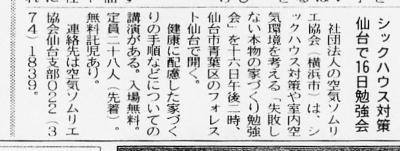 シックハウス対策
仙台で16日勉強会
社団法人の空気ソムリ
エ協会（横浜市）は、シ
ックハウス対策や室内空
気環境を考える「失敗し
ない本物の家づくり勉強
会」を十六日午後二時、
仙台市青葉区のフォレス
ト仙台で開く。
健康に配慮した家づく
りの手順などについての
講演がある。入場無料。
定員二十八人（先着）。
無料託児あり。
連絡先は空気ソムリエ
協会仙台支部022（3
74）1839。